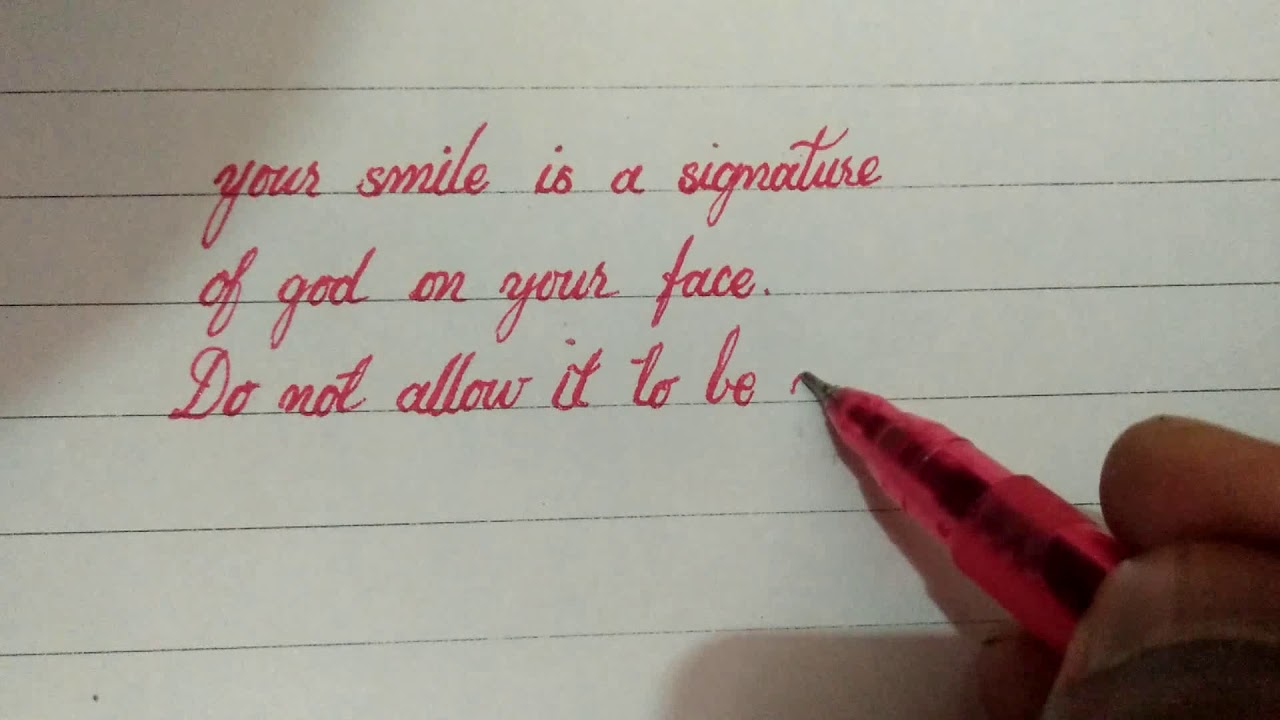 your smile is a signature
of god on your face.
Do not allow it to be